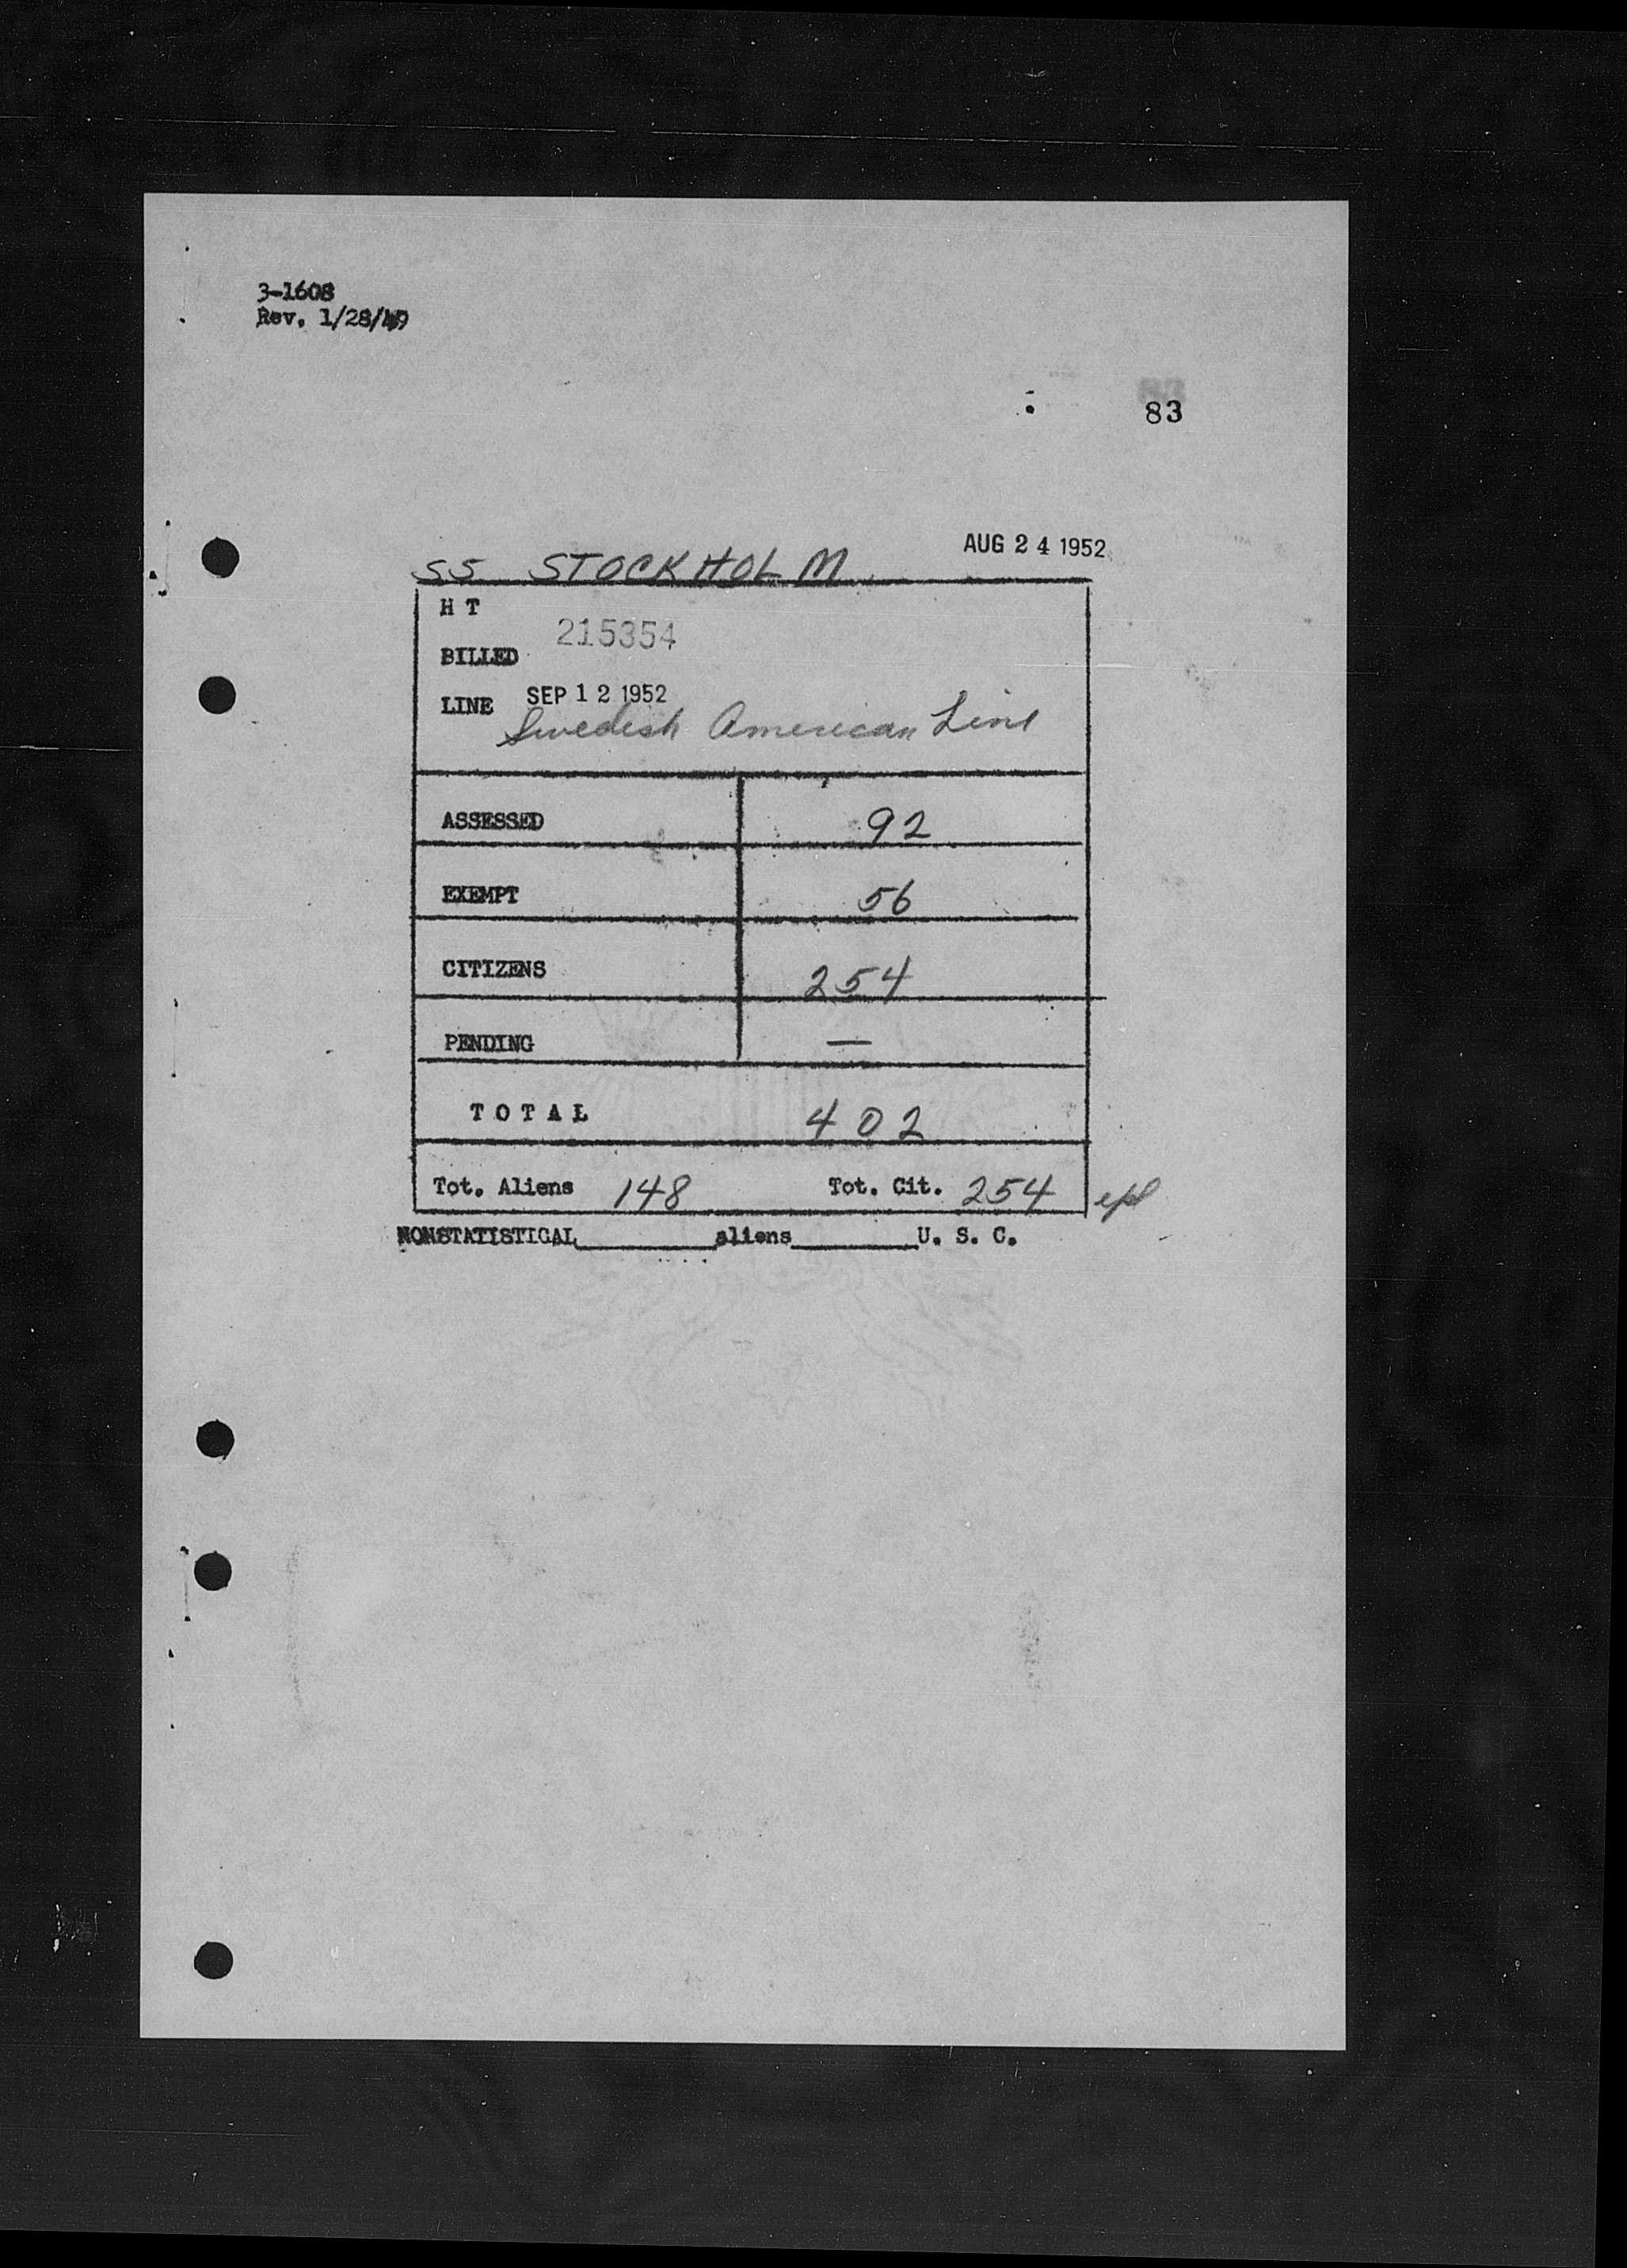 3-1608
Rev. 1/28/49
83
AUG 24 1952
SS STOCKHOLM
H T
215354
BILLED
SEP 12 1952
LINE
Swedish American Line
ASSESSED 92
EXEMPT 56
CITIZENS 254
PENDING —
TOTAL 402
Tot. Aliens 148 Tot. Cit. 254
NONSTATISTICAL________aliens________U. S. C.